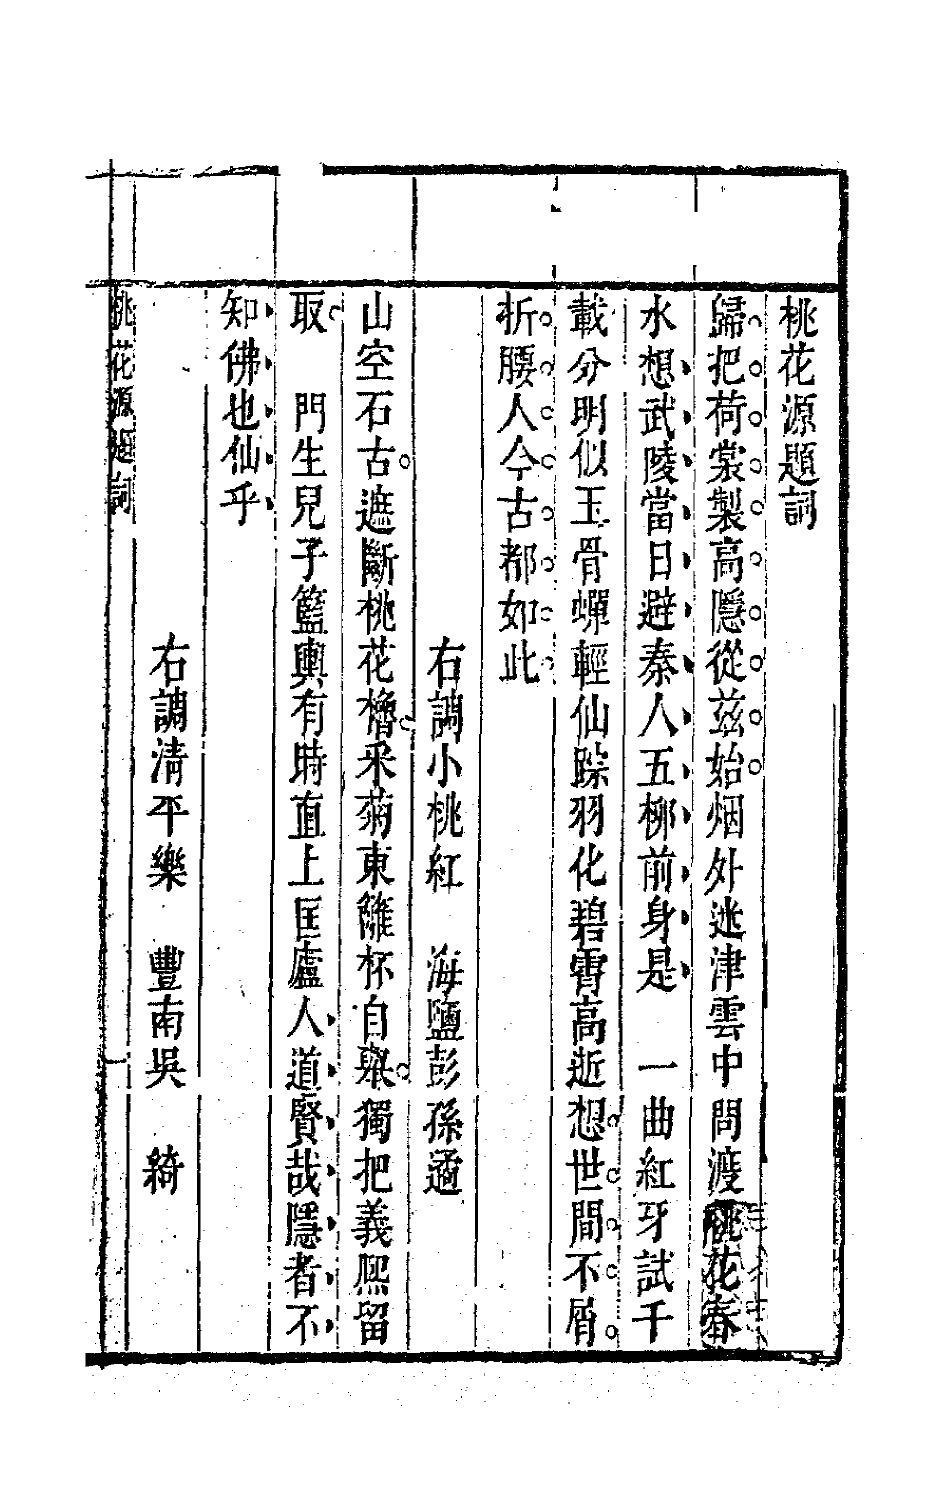 桃花源題詞
歸把荷裳製高隱從茲始烟外迷津雲中問渡桃花春
水想武陵當日避秦人五桺前身是　一曲紅牙試千
載分明似玉骨蟬輕仙踪羽化碧霄高逝想世間不屑
折腰人今古都如此
右調小桃紅　海鹽彭孫遹
山空石古遮斷桃花櫓采菊東籬杯自舉獨把義熈留
取　門生兒子籃輿有時直上匡廬人道賢哉隱者不
知佛也仙乎
右調清平樂　豐南吳　綺
桃花源題詞　一